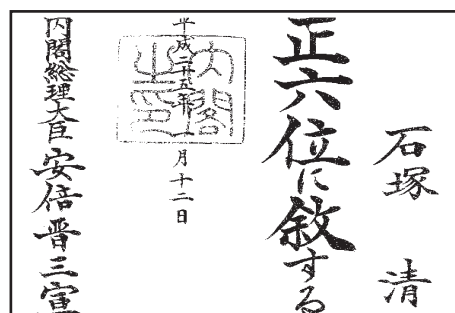 石塚 清
正六位に叙する
平成二十五年 月十二日
内閣之印
内閣総理大臣安倍晋三宣